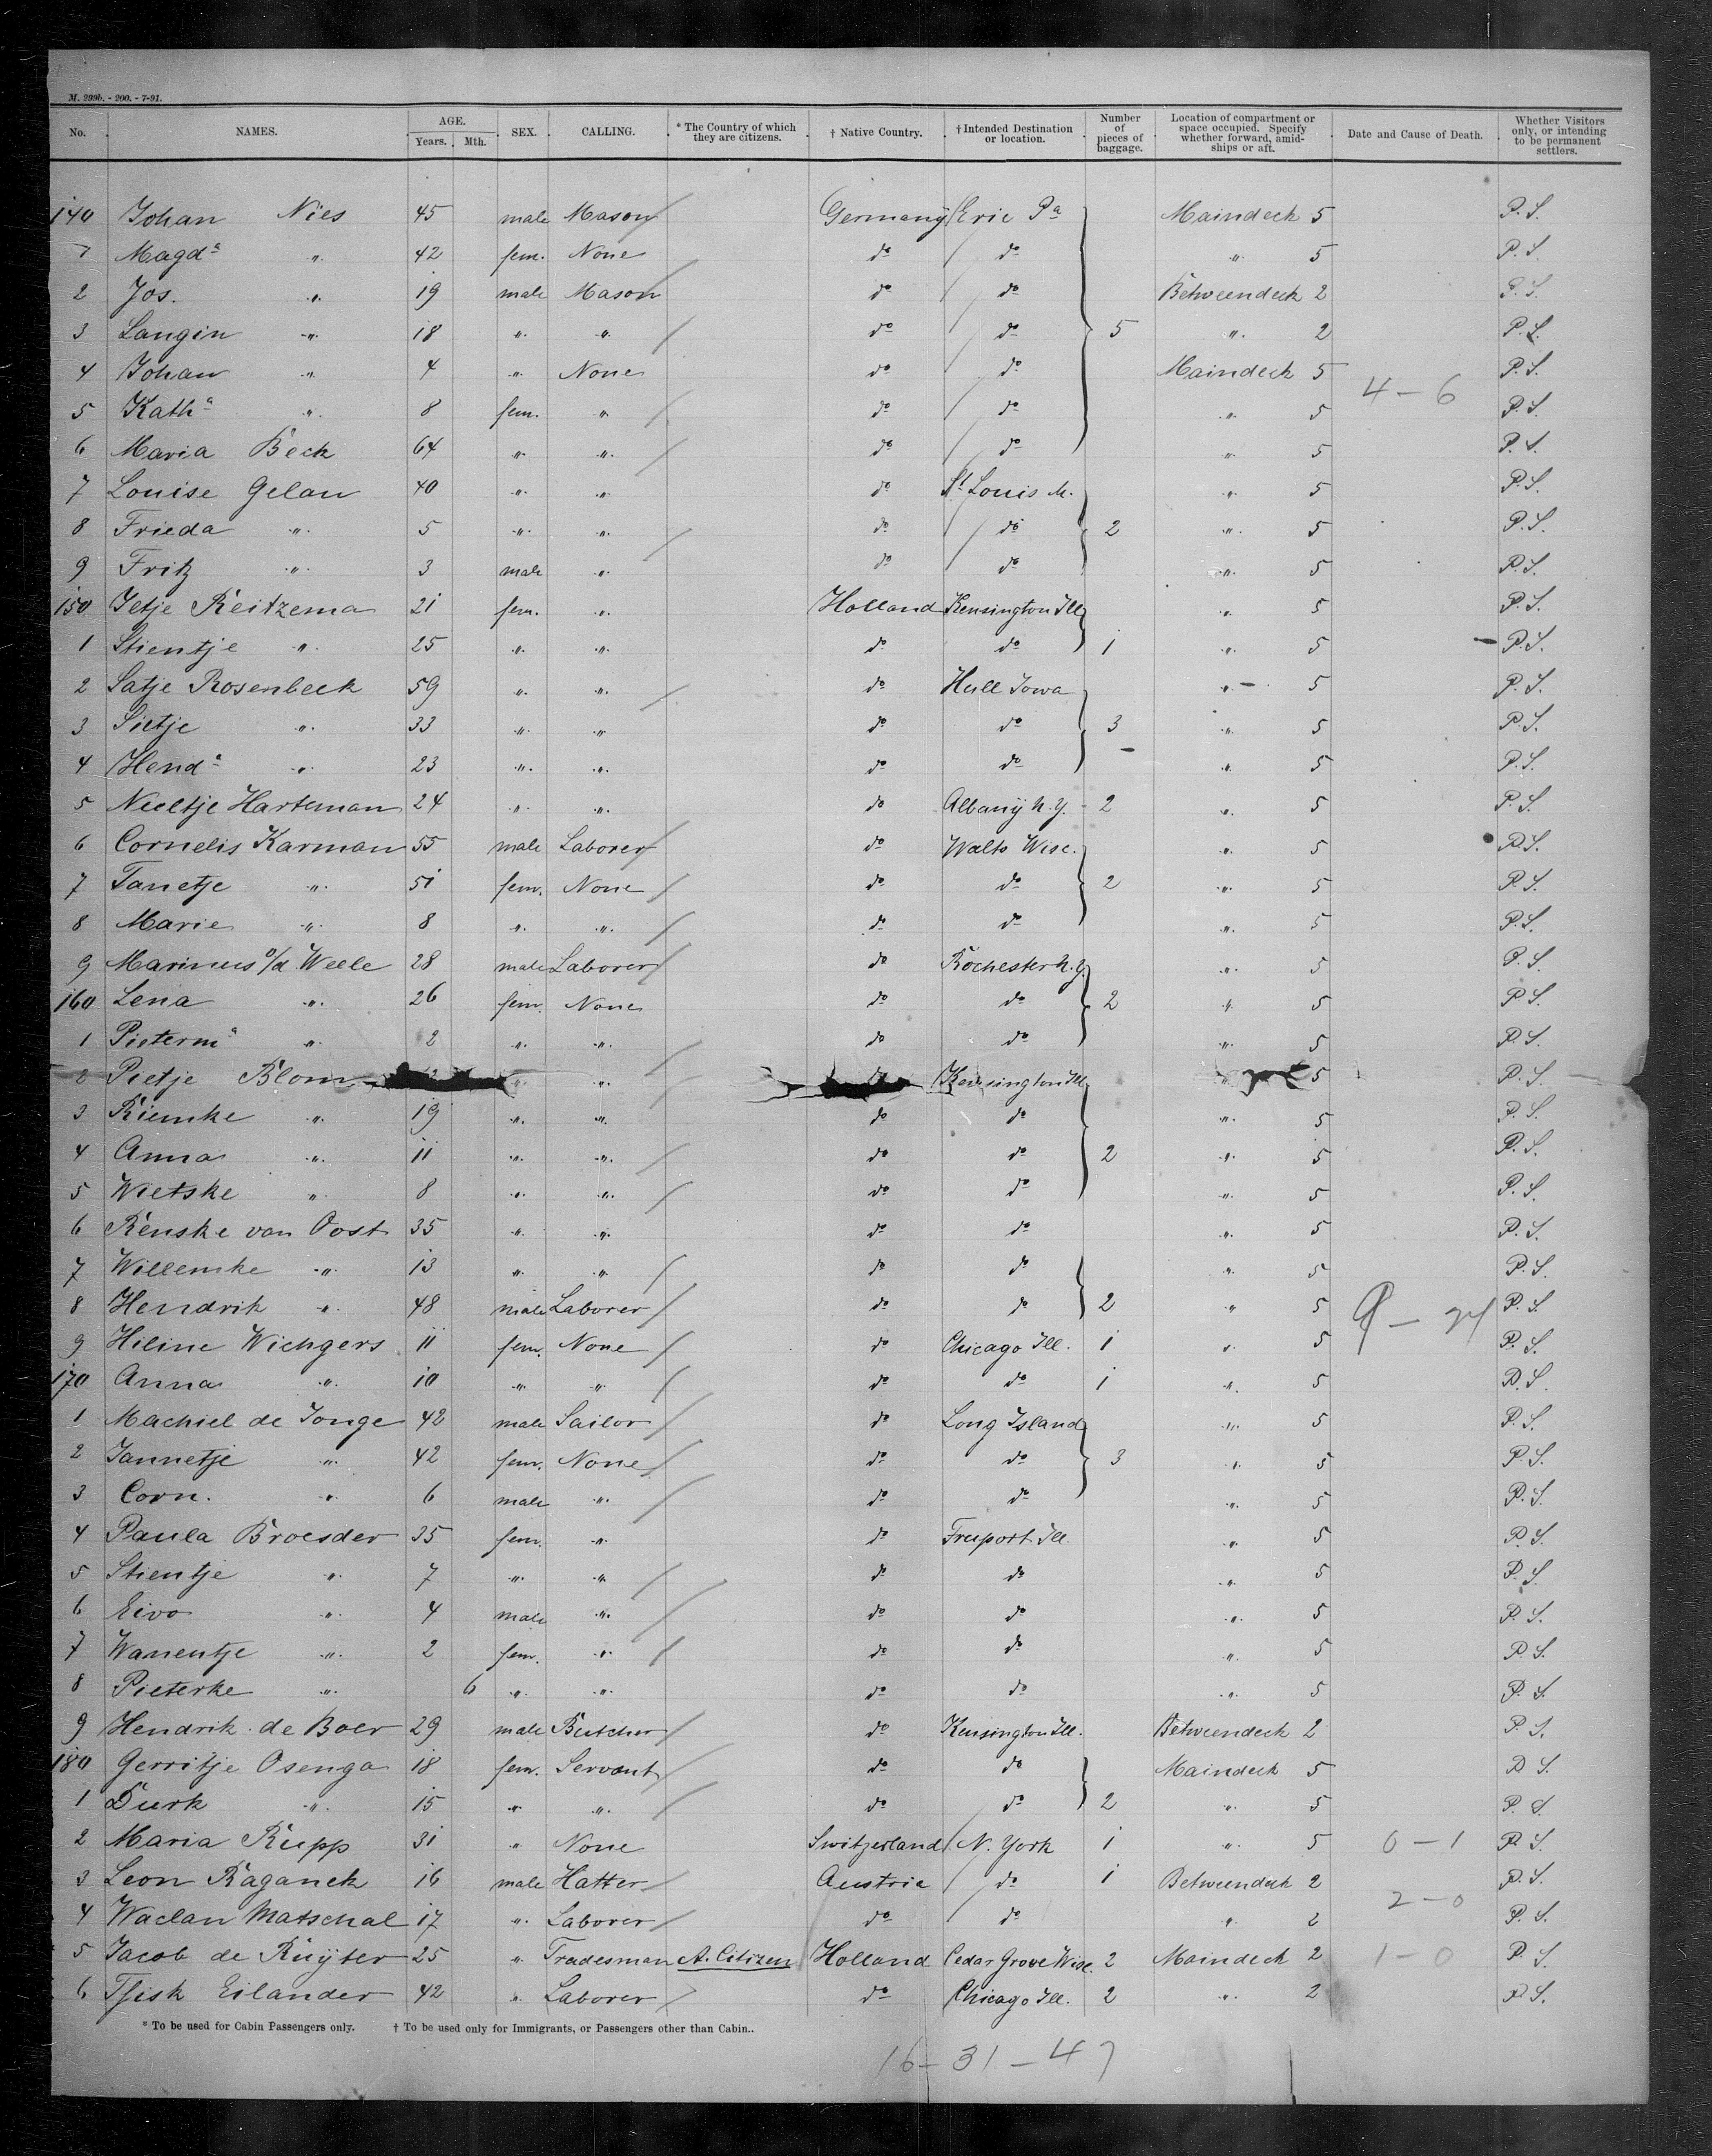 M. 299b. - 200. - 7-91.
No. NAMES. AGE. Years. Mth. SEX. CALLING. * The Country of which they are citizens. † Native Country. † Intended Destination or location. Number of pieces of baggage. Location of compartment or space occupied. Specify whether forward, amidships or aft. Date and Cause of Death. Whether Visitors only, or intending to be permanent settlers.
140 Johan Nies 45 male Mason Germany Erie Pa Maindeck 5 P. S.
Magda " 42 fem. None do do " 5 P. S.
2 Jos. " 19 male Mason do do Betweendeck 2 P. S.
3 Langin " 18 " " do do 5 " 2 P. S.
4 Johan " 4 " None do do Maindeck 5 4 - 6 P. S.
5 Katha " 8 fem. " do do " 5 P. S.
6 Maria Beck 64 " " do do " 5 P. S.
7 Louise Gelan 40 " " do St Louis M. " 5 P. S.
8 Frieda " 5 " " do do 2 " 5 P. S.
9 Fritz " 3 male " do do " 5 P. S.
150 Ietje Reitzema 21 fem. " Holland Kensington Ill " 5 P. S.
1 Stientje " 25 " " do do 1 " 5 P. S.
2 Satje Rosenbeek 59 " " do Hull Iowa " 5 P. S.
3 Sietje " 33 " " do do 3 " 5 P. S.
4 Henda " 23 " " do do " 5 P. S.
5 Neeltje Harteman 24 " " do Albany N.Y. 2 " 5 P. S.
6 Cornelis Karman 55 male Laborer do Walto Wisc. " 5 P. S.
7 Tanetje " 51 fem. None do do 2 " 5 P. S.
8 Marie " 8 " " do do " 5 P. S.
9 Marinus v/d Weele 28 male Laborer do Rochester N.Y. " 5 P. S.
160 Lena " 26 fem. None do do 2 " 5 P. S.
1 Pieterna " 2 " " do do " 5 P. S.
2 Pietje Blom " " do Kensington Ill " 5 P. S.
3 Riemke " 19 " " do do " 5 P. S.
4 Anna " 11 " " do do 2 " 5 P. S.
5 Wietske " 8 " " do do " 5 P. S.
6 Renske van Oost 35 " " do do " 5 P. S.
7 Willemke " 13 " " do do " 5 P. S.
8 Hendrik " 48 male Laborer do do 2 " 5 P. S.
9 Hiline Wichgers 11 fem. None do Chicago Ill. 1 " 5 P. S.
170 Anna " 10 " " do do 1 " 5 P. S.
1 Machiel de Jonge 42 male Sailor do Long Island " 5 P. S.
2 Jannetje " 42 fem. None do do 3 " 5 P. S.
3 Corn. " 6 male " do do " 5 P. S.
4 Paula Broesder 35 fem. " do Freeport Ill. " 5 P. S.
5 Stientje " 7 " " do do " 5 P. S.
6 Eivo " 4 male " do do " 5 P. S.
7 Wanentje " 2 fem. " do do " 5 P. S.
8 Pieterke " 6 " " do do " 5 P. S.
9 Hendrik de Boer 29 male Butcher do Kensington Ill. Betweendeck 2 P. S.
180 Gerritje Osenga 18 fem. Servant do do Maindeck 5 P. S.
1 Durk " 15 " " do do 2 " 5 P. S.
2 Maria Rupp 31 " None Switzerland N. York 1 " 5 0 - 1 P. S.
3 Leon Raganek 16 male Hatter Austria do 1 Betweendeck 2 P. S.
4 Waclan Matschal 17 " Laborer do do " 2 2 - 0 P. S.
5 Jacob de Ruyter 25 " Tradesman A. Citizen Holland Cedar Grove Wisc. 2 Maindeck 2 1 - 0 P. S.
6 Tjisk Eilander 42 " Laborer do Chicago Ill. 2 " 2 P. S.
* To be used for Cabin Passengers only. † To be used only for Immigrants, or Passengers other than Cabin..
16 - 31 - 47